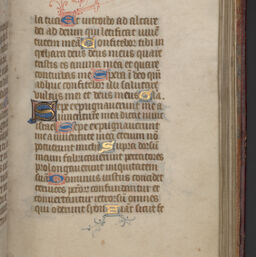 la tua Et introibo ad altare
dei ad deum qui letificat iuuen
tutem mea Confitebor tibi in
cythara deus deus meus quare
tristis es anima mea et quare
conturbas me Spera in deo qm
adhuc confitebor illi salutare
vultus mei et deus meus
Sepe expugnauerunt me a
iuuentute mea dicat nunc
israel Sepe expugnauerunt
me a iuuentute mea etenim no
potuerunt michi Supra dorsu
meum fabricauerunt peccatores
prolongauerunt iniquitatem
sua Dominus iustus concidet
ceruices pctor confundantur et
conuertantur retrorsum omnes
qui oderunt syon Fiant sicut fe